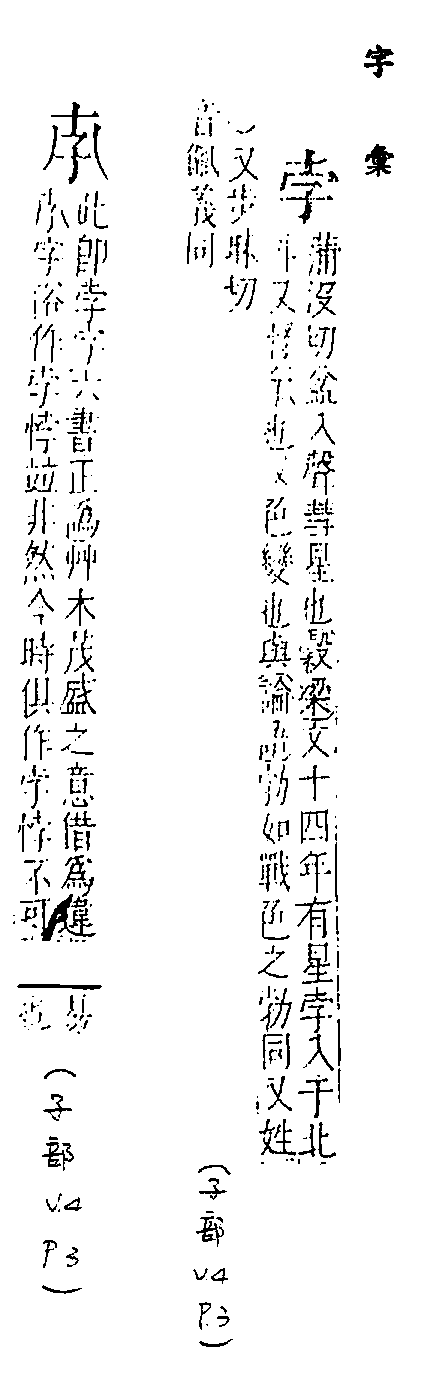 字彙
孛
蒲没切盆入聲彗星也穀梁文十四年有星孛入于北
斗又悖亂也又色變也與論語勃如戰色之勃同又姓
又步昧切
音佩義同
(子部 V.4 P.3)
此卽孛字六書正爲艸木茂盛之意借爲違
字俗作孛悖竝非然今時俱作孛悖不可
易
也
(子部 V.4 P3)